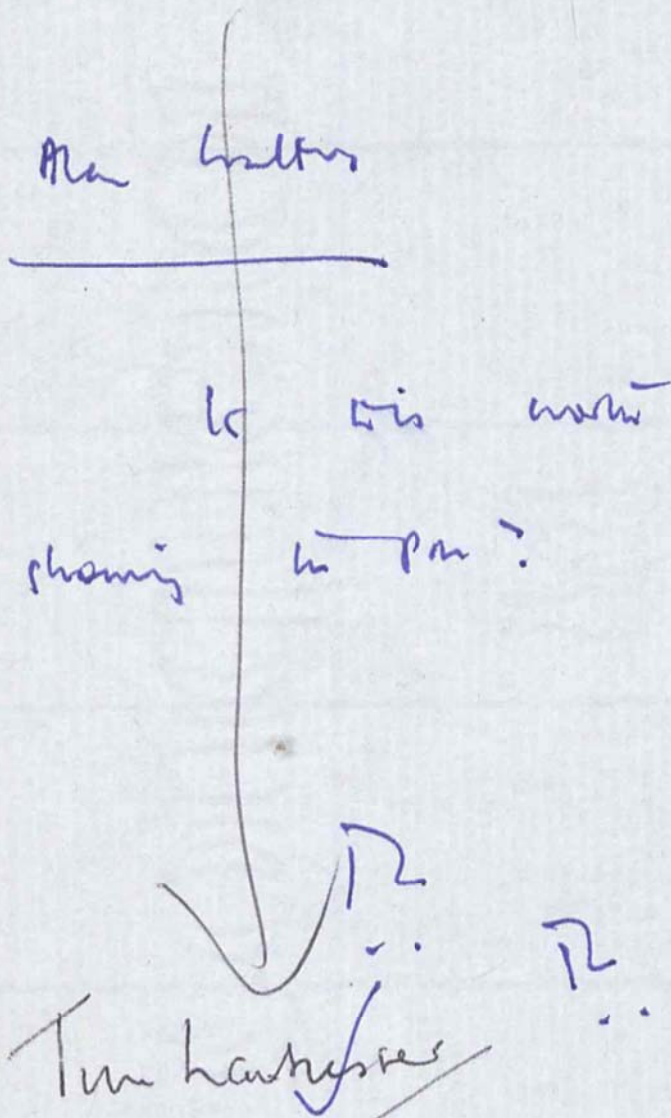 Alan Walters
Is this worth
showing to PM?
Tim Lankester